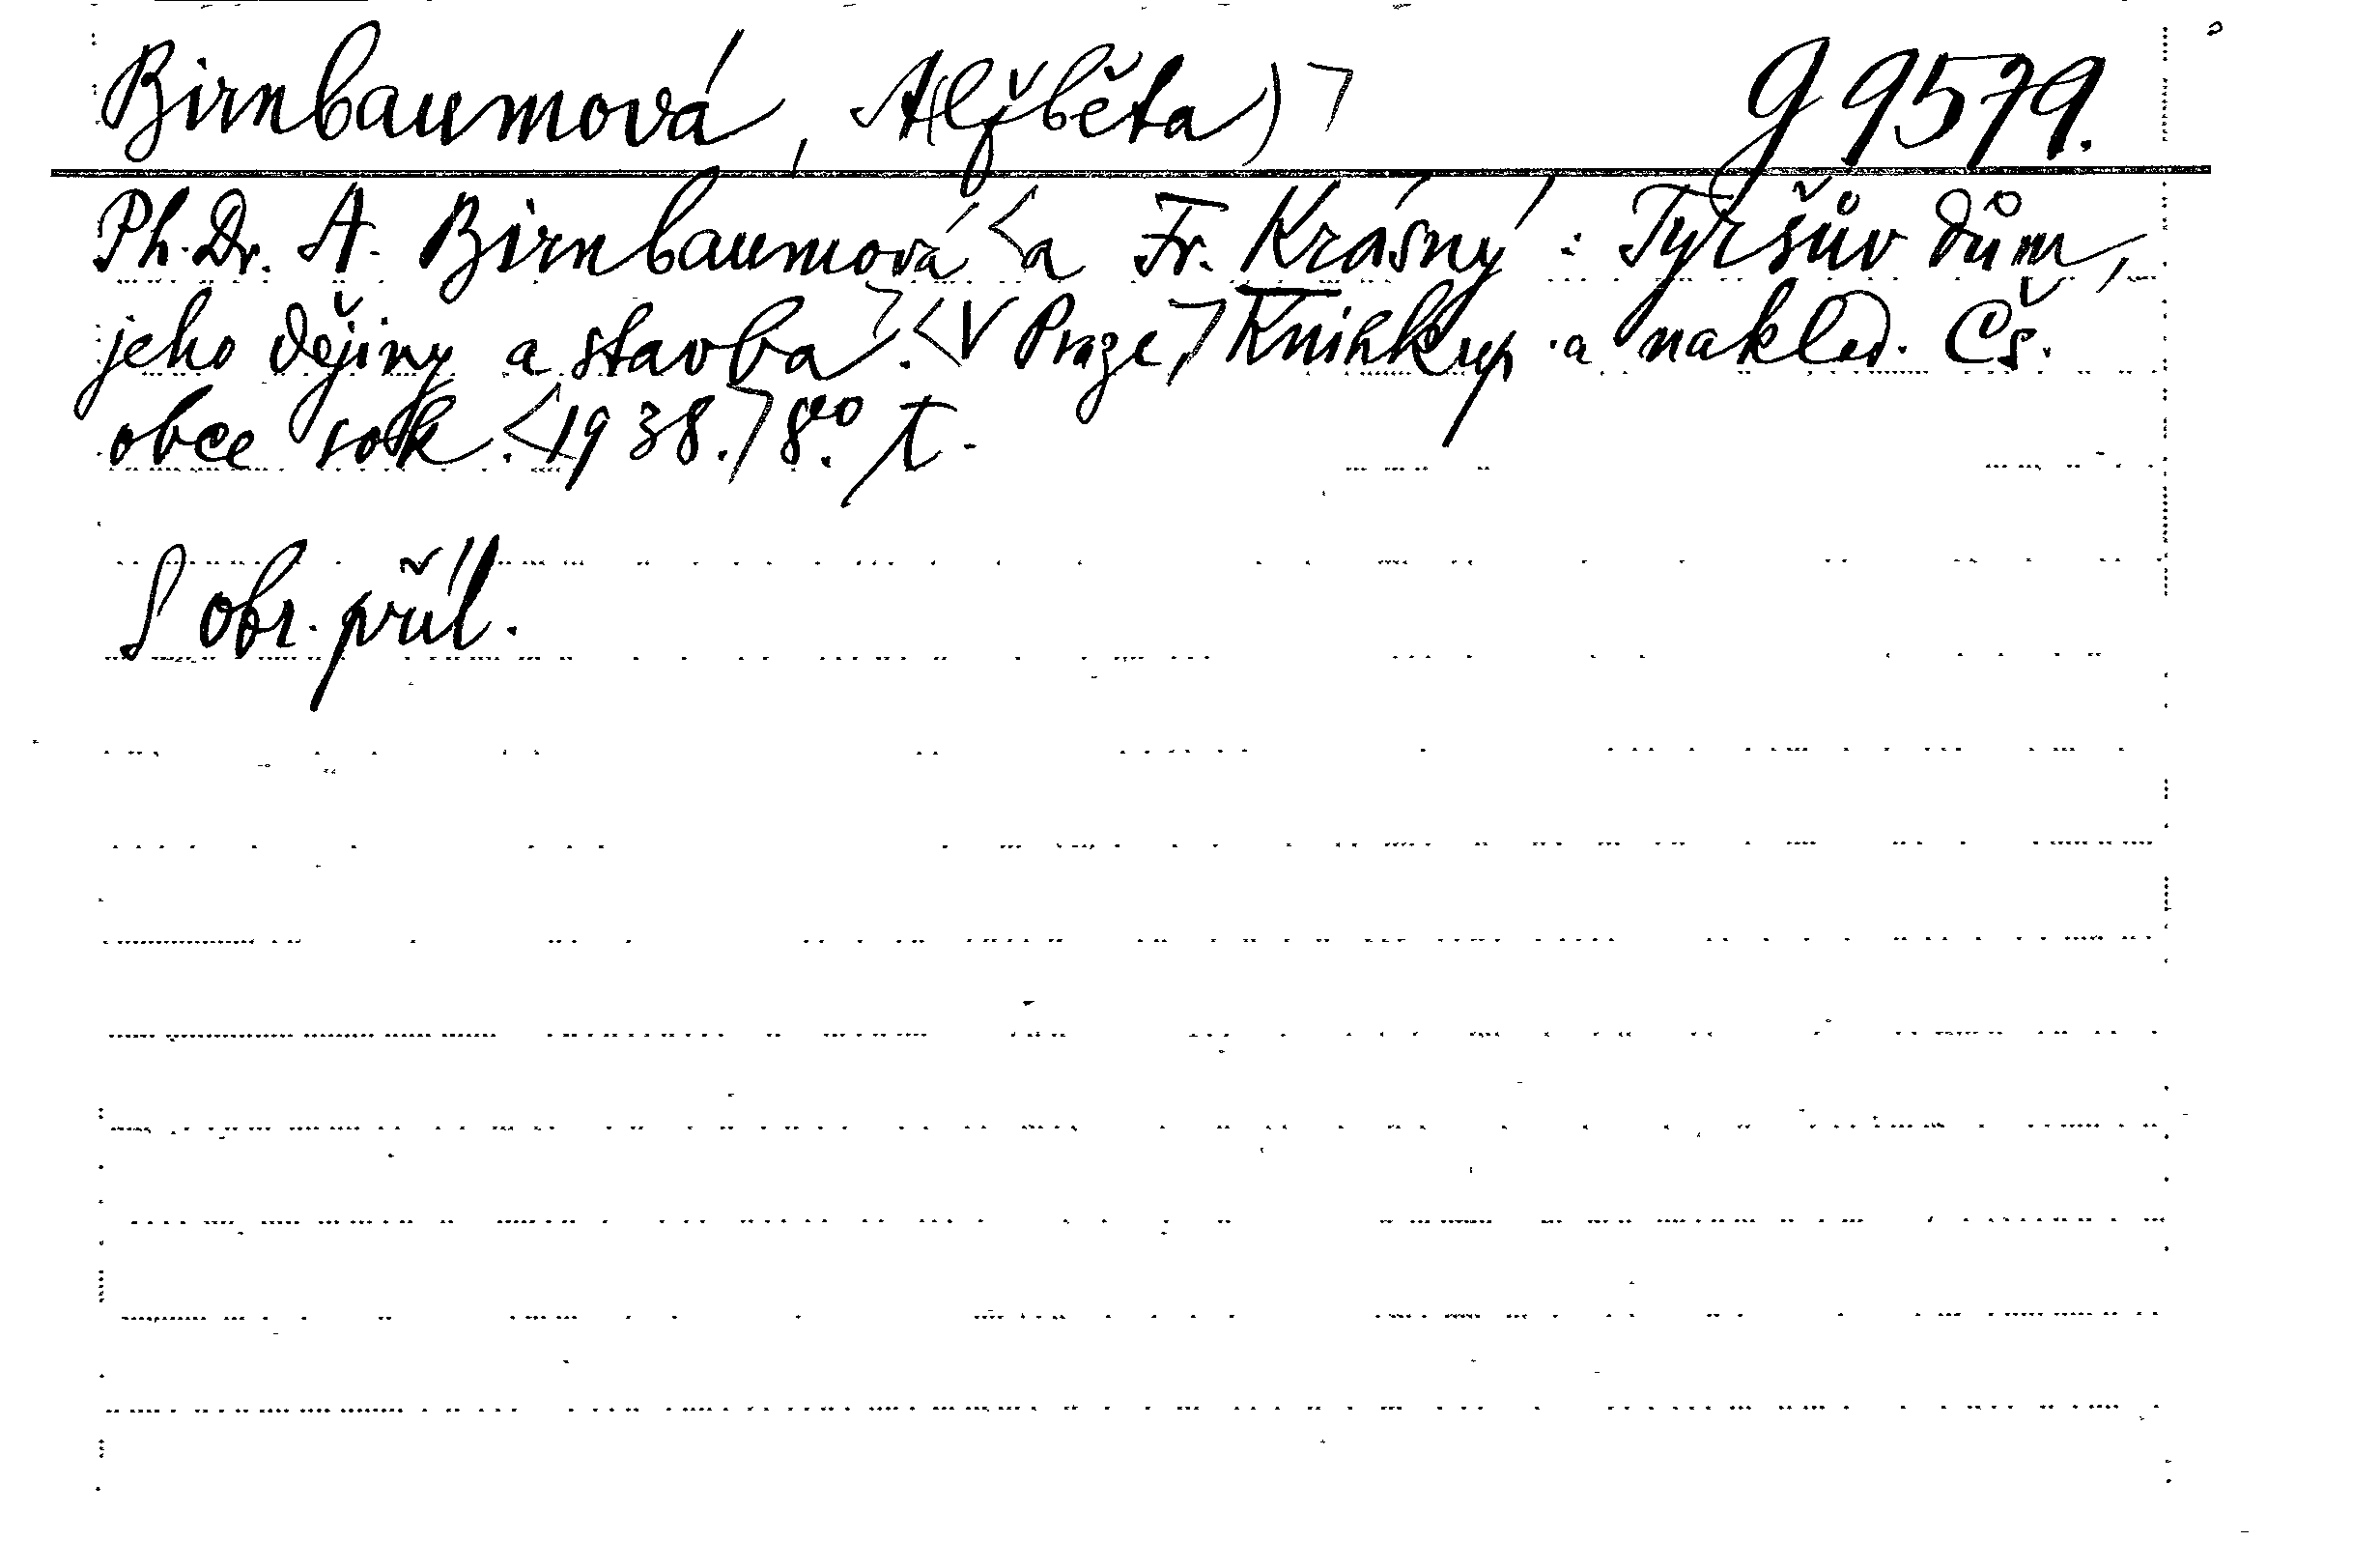 Birnbaumová, A(lžběta)> g 9579.
Ph.Dr. A. Birnbaumová <a Fr. Krásný: Tyršův dům,
jeho dějiny a stavba>. <V Praze,> Knihkup. a naklad. Čs.
obce sok. <1938.> 8°. t.
S obr. příl.